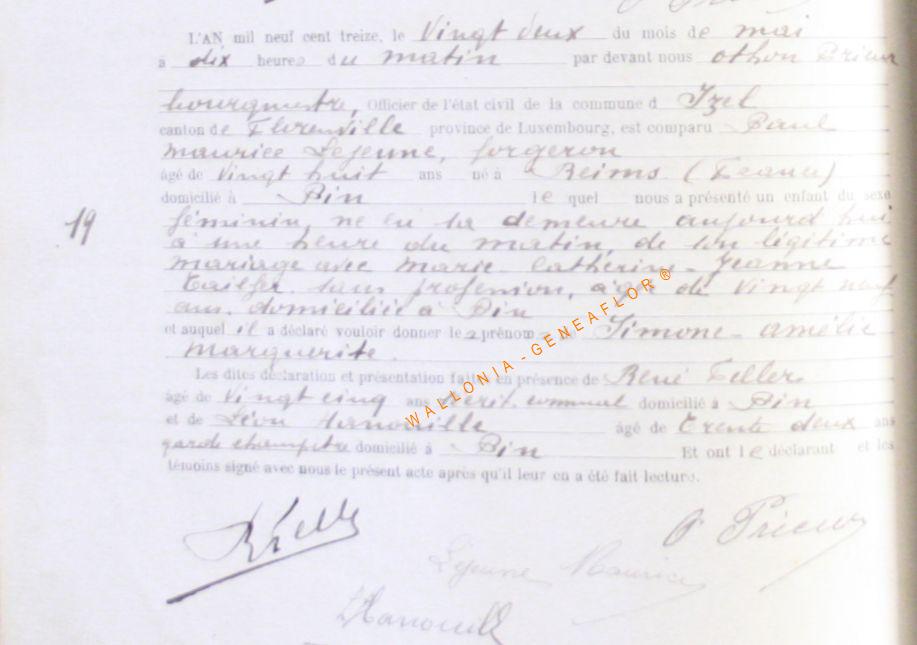 L'AN mil neuf cent treize, le Vingt deux du mois de mai
à dix heures du matin par devant nous othon Prieur
bourgmestre, Officier de l'état civil de la commune d Izel
canton de Florenville province de Luxembourg, est comparu Paul
maurice Lejeune, forgeron
âgé de Vingt huit ans né à Reims (France)
domicilié à Pin le quel nous a présenté un enfant du sexe
féminin, né en sa demeure aujourd hui
à une heure du matin, de son légitime
mariage avec marie Catherine Jeanne
sans profession, agée de Vingt neuf
ans, domiciliée à Pin
et auquel il a déclaré vouloir donner les prénoms Simone amélie
marguerite.
Les dites déclaration et présentation faites en présence de René Feller
âgé de Vingt cinq ans secrét. communal domicilié à Pin
et de Léon Hanouille âgé de Trente deux ans
garde champêtre domicilié à Pin Et ont le déclarant et les
témoins signé avec nous le présent acte après qu'il leur en a été fait lecture.
19
WALLONIA-GENEAFLOR®
O Prieur
Lejeune Maurice